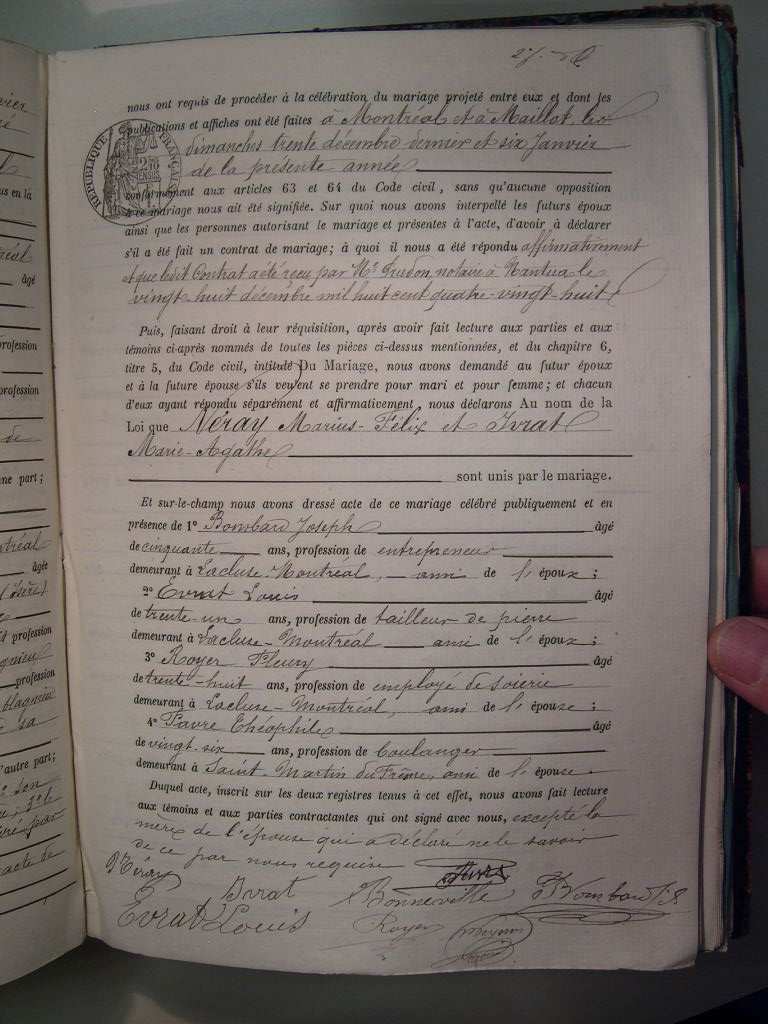 nous ont requis de procéder à la célébration du mariage projeté entre eux et dont les
publications et affiches ont été faites à Montréal et à Maillat, les
dimanches trente décembre dernier et six Janvier
de la présente année
conformément aux articles 63 et 64 du Code civil, sans qu'aucune opposition
à ce mariage nous ait été signifiée. Sur quoi nous avons interpellé les futurs époux
ainsi que les personnes autorisant le mariage et présentes à l'acte, d'avoir à déclarer
s'il a été fait un contrat de mariage; à quoi il nous a été répondu affirmativement
et que ledit Contrat a été reçu par Me notaire à Nantua le
vingt-huit décembre mil huit cent quatre-vingt-huit
Puis, faisant droit à leur réquisition, après avoir fait lecture aux parties et aux
témoins ci-après nommés de toutes les pièces ci-dessus mentionnées, et du chapitre 6,
titre 5, du Code civil, intitulé Du Mariage, nous avons demandé au futur époux
et à la future épouse s'ils veulent se prendre pour mari et pour femme; et chacun
d'eux ayant répondu séparément et affirmativement, nous déclarons Au nom de la
Loi que Néray Marius-Félix et Ivrat
Marie-Agathe
sont unis par le mariage.
Et sur-le-champ nous avons dressé acte de ce mariage célébré publiquement et en
présence de 1° Bombard Joseph âgé
de cinquante ans, profession de entrepreneur
demeurant à Lacluse-Montréal, ami de l'époux;
2° Evrat Louis âgé
de trente-un ans, profession de tailleur de pierre
demeurant à Lacluse-Montréal ami de l'époux;
3° Royer Fleury âgé
de trente-huit ans, profession de employé de soierie
demeurant à Lacluse-Montréal, ami de l'épouse;
4° Favre Théophile âgé
de vingt-six ans, profession de boulanger
demeurant à Saint-Martin du Frêne, ami de l'épouse.
Duquel acte, inscrit sur les deux registres tenus à cet effet, nous avons fait lecture
aux témoins et aux parties contractantes qui ont signé avec nous, excepté la
mère de l'épouse qui a déclaré ne le savoir
de ce par nous requise
Néray Ivrat Bonneville Bombard
Evrat Louis Royer